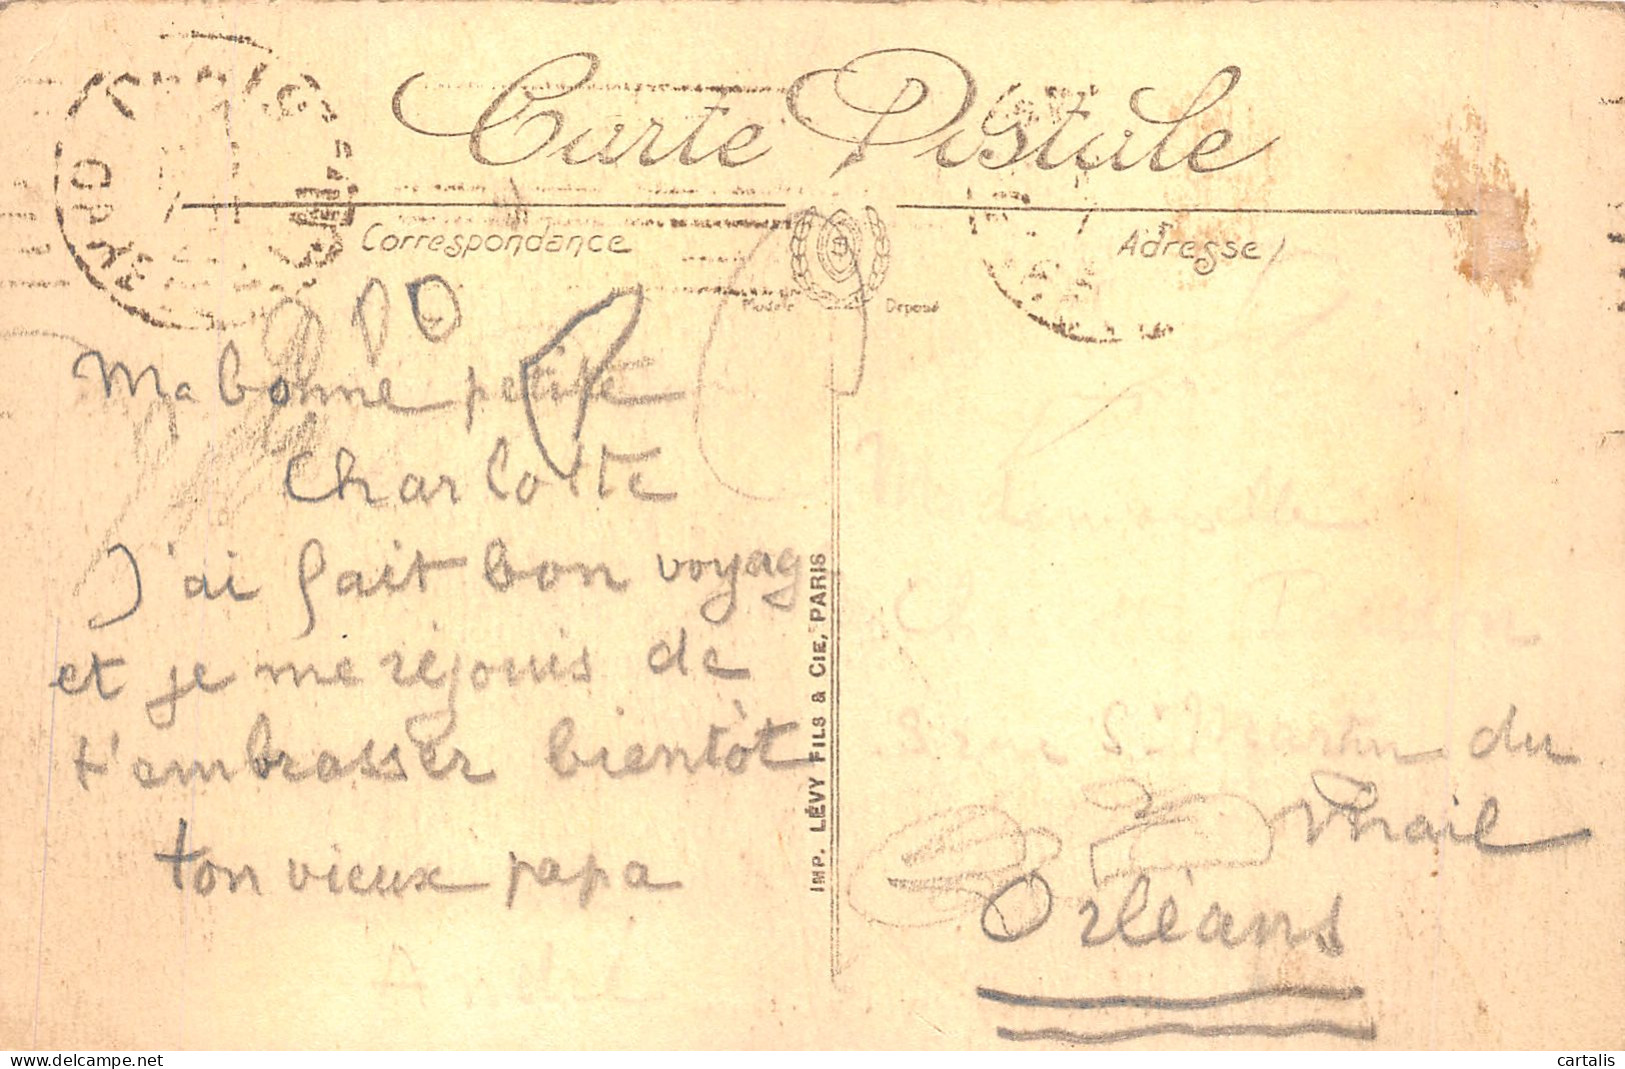 Carte Postale
Correspondance
Adresse
Modèle Déposé
Ma bonne petite
Charlotte
J'ai fait bon voyag
et je me réjouis de
t'embrasser bientôt
ton vieux papa
IMP. LÉVY FILS & CIE, PARIS
Mademoiselle
3 rue St Martin du
Mail
Orléans
cartalis